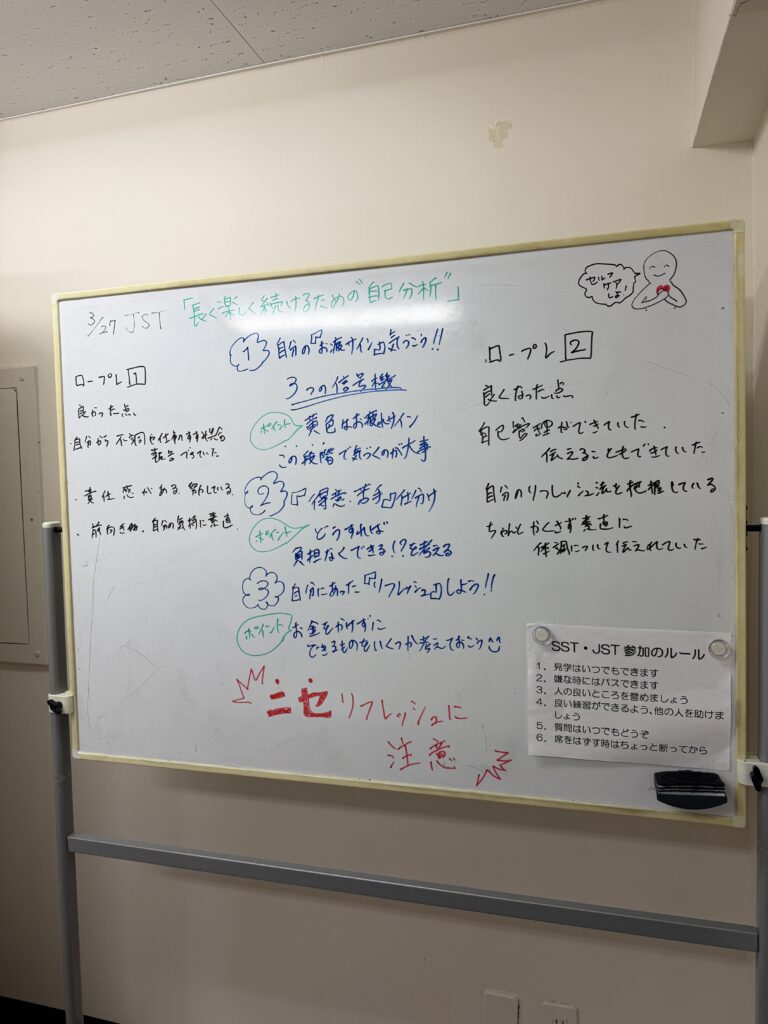 3/27 JST 「長く楽しく続けるための"自己分析"」
セルフ
ケア
しよ!
ロープレ 1
良かった点、
・自分から不調や仕事
報告できていた
・責任感がある
・前向き 自分の気持に素直
① 自分の『お疲れサイン』気づこう!!
3つの信号機
ポイント 黄色はお疲れサイン
この段階で気づくのが大事
② 『得意・苦手』仕分け
ポイント どうすれば
負担なくできる!?を考える
③ 自分にあった『リフレッシュ』しよう!!
ポイント お金をかけずに
できるものをいくつか考えておこう
ニセリフレッシュに
注意
ロープレ 2
良くなった点、
自己管理ができていた.
伝えることもできていた
自分のリフレッシュ法を把握している
ちゃんとかくさず素直に
体調について伝えれていた
SST・JST 参加のルール
1. 見学はいつでもできます
2. 嫌な時にはパスできます
3. 人の良いところを誉めましょう
4. 良い練習ができるよう、他の人を助けま
しょう
5. 質問はいつでもどうぞ
6. 席をはずす時はちょっと断ってから